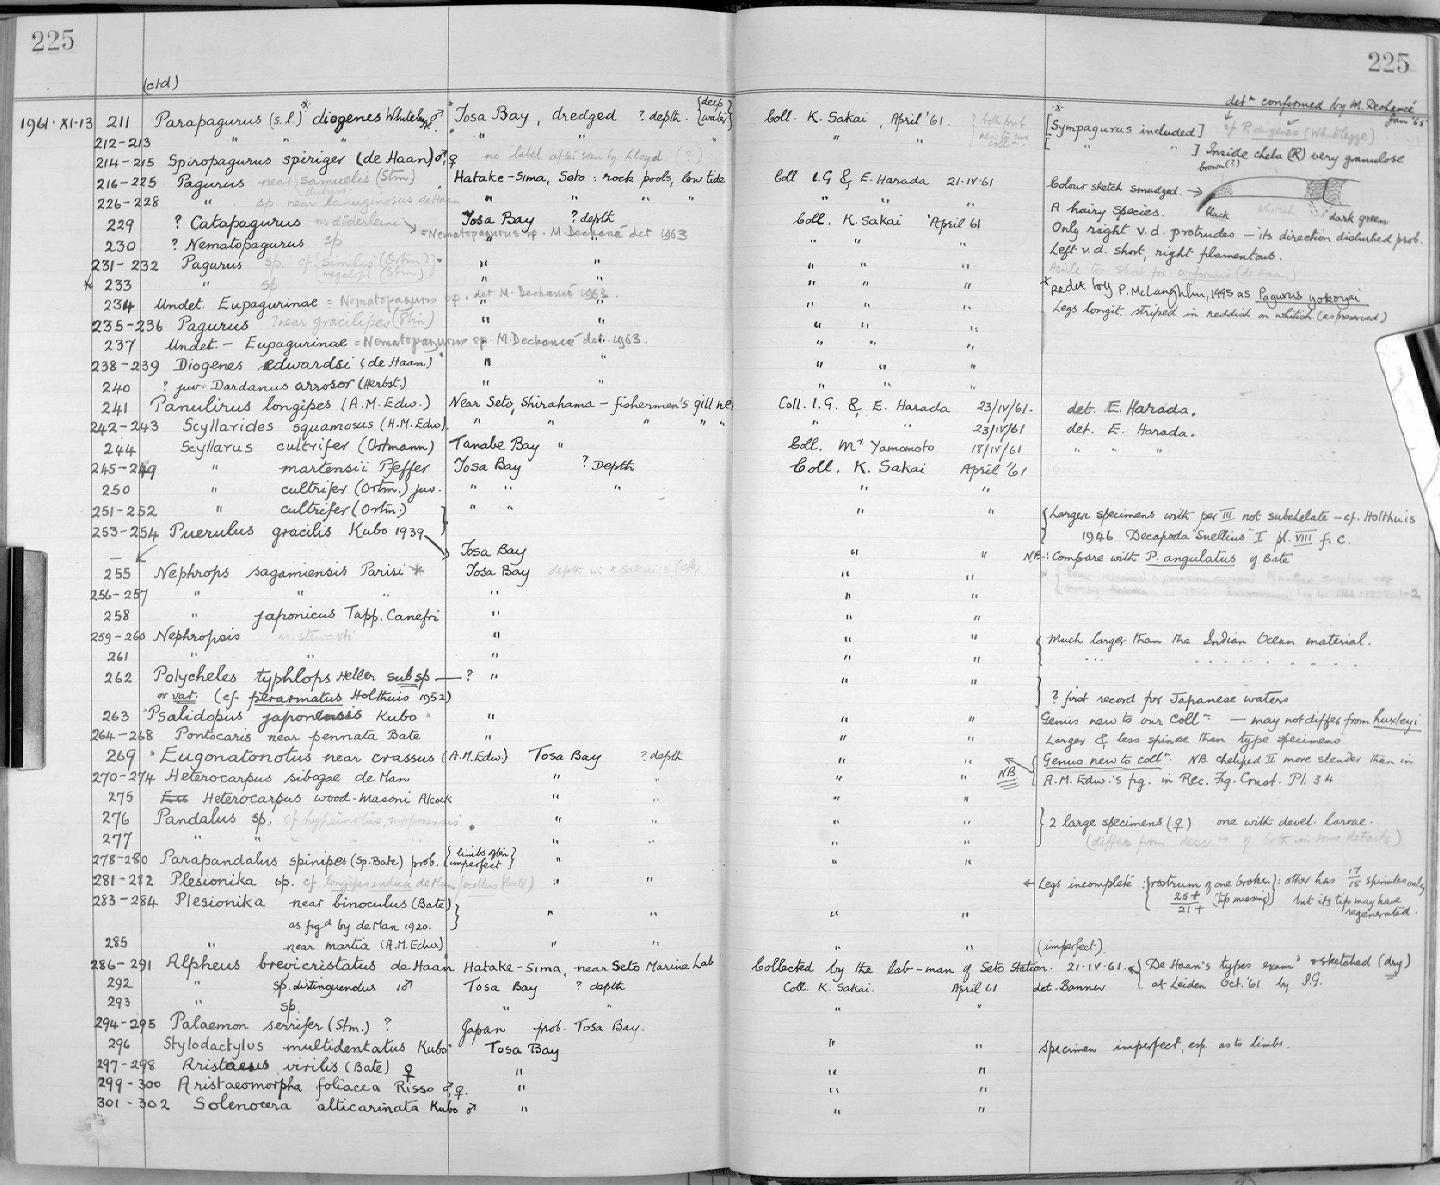 225 225
(ctd)
detn confirmed by M. Dechancé Jan '65
1961·XI·13 211 Parapagurus (s.l.) * diogenes Whitelegge ♂ Tosa Bay, dredged ? depth. {deep water} Coll. K. Sakai, April '61. [Sympagurus included] cf P. diogenes (Whitelegge)
212-213 " " " " " " " [ " " ] Inside chela (R) very granulose
214-215 Spiropagurus spiriger (de Haan) ♂,♀ no label after seen by Lloyd (?)
216-225 Pagurus near samuelis (Stm) Hatake-Sima, Seto : rock pools, low tide Coll I.G & E. Harada 21·IV·61 Colour sketch smudged. → brown(?) black whitish dark green
226-228 " sp. near lanuginosus de Haan " " " " " " " A hairy species.
229 ? Catapagurus Tosa Bay ? depth Coll. K. Sakai April 61 Only right v.d. protrudes — its direction disturbed prob.
= Nematopagurus sp. M. Dechancé det 1963
230 ? Nematopagurus sp " " " " Left v.d. short, right filamentous.
231-232 Pagurus sp. cf. similis (Ortm?) " " " "
* 233 " sp " " " " * Redet by P. McLaughlin, 1995 as Pagurus yokoyai
234 Undet. Eupagurinae = Nematopagurus sp. det M. Dechancé 1963. " " " " Legs longit. striped in reddish on whitish (as preserved)
235-236 Pagurus ? near gracilipes (Stm) " " " "
237 Undet. — Eupagurinae = Nematopagurus sp. M. Dechancé det. 1963. " "
238-239 Diogenes edwardsi (de Haan) " " " "
240 ? juv. Dardanus arrosor (Herbst.) " " " "
241 Panulirus longipes (A.M.Edw.) Near Seto, Shirahama — fishermen's gill net Coll. I.G. & E. Harada 23/IV/61. det. E. Harada.
242-243 Scyllarides squamosus (H.M.Edw). " " " " " " 23/IV/61 det. E. Harada.
244 Scyllarus cultrifer (Ortmann) Tanabe Bay " Coll. Mr Yamomoto 18/IV/61 " " "
245-249 " martensii Pfeffer Tosa Bay ? Depth Coll. K. Sakai April '61
250 " cultrifer (Ortm.) juv. " " " " "
251-252 " cultrifer (Ortm.) " " " " { Larger specimens with per III not subchelate — cf. Holthuis
253-254 Puerulus gracilis Kubo 1939 1946 Decapoda "Snellius" I pl. VIII f. c.
— Tosa Bay " " NB-: Compare with P. angulatus of Bate
255 Nephrops sagamiensis Parisi * Tosa Bay " "
256-257 " " " " " "
258 " japonicus Tapp. Canefri " " "
259-260 Nephropsis " " " { Much larger than the Indian Ocean material.
261 " " " " "
262 Polycheles typhlops Heller subsp — ? " " "
or var. (cf. perarmatus Holthuis 1952) ? first record for Japanese waters
263 Psalidopus japonensis Kubo " " " Genus new to our Colln — may not differ from huxleyi
264-268 Pontocaris near pennata Bate " " " Larger & less spinose than type specimens
269 Eugonatonotus near crassus (A.M.Edw.) Tosa Bay ? depth " " NB Genus new to colln. NB. cheliped II more slender than in
270-274 Heterocarpus sibogae de Man " " " " A.M. Edw.'s fig. in Rec. Fig. Crust. Pl. 34
275 Heterocarpus wood-masoni Alcock " " "
276 Pandalus sp. " " " " } 2 large specimens (♀) one with devel. larvae.
277 " " " " " (differs from descrns of both in some details)
278-280 Parapandalus spinipes (Sp. Bate) prob. {limbs often imperfect} " " "
281-282 Plesionika sp. cf longipes indica de Man " " ← Legs incomplete {rostrum of one broken}: other has 17/15 spinules only
283-284 Plesionika near binoculus (Bate) 25+/21+ (tip missing) but its tip may have regenerated.
as figd by de Man 1920. " " " "
285 " near martia (A.M.Edw) " " " " (imperfect).
286-291 Alpheus brevicristatus de Haan Hatake-Sima, near Seto Marine Lab Collected by the lab-man of Seto Station. 21·IV·61. { De Haan's types examd & sketched (dry)
292 " sp. distinguendus 1♂ Tosa Bay ? depth Coll. K. Sakai. April 61 det. Banner at Leiden Oct. '61 by I.G.
293 " sp " " " "
294-295 Palaemon serrifer (Stm.) ? Japan prob. Tosa Bay.
296 Stylodactylus multidentatus Kubo Tosa Bay " " Specimen imperfect, esp. as to limbs.
297-298 Aristaeus virilis (Bate) ♀ " " "
299-300 Aristaeomorpha foliacea Risso ♂,♀. " " "
301-302 Solenocera alticarinata Kubo ♂ " " "